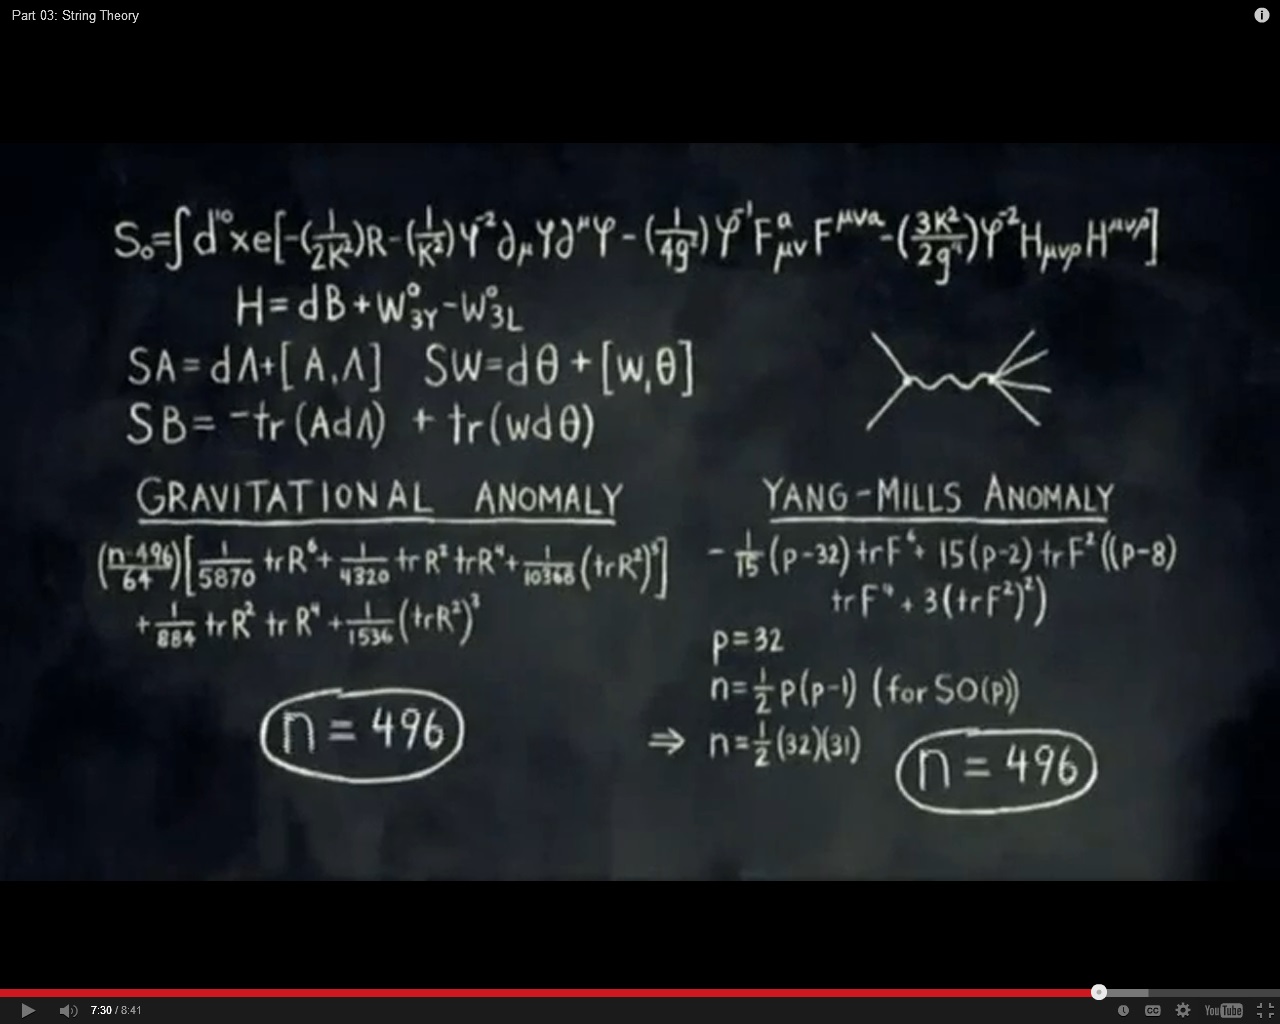 Part 03: String Theory
S₀=∫d¹⁰xe[-(1/2K²)R-(1/K²)φ⁻²∂μφ∂^μφ-(1/4g²)φ⁻¹F^a_μν F^μνa-(3K²/2g⁴)φ⁻²H_μνρ H^μνρ]
H=dB+W⁰₃Y-W⁰₃L
SA=dΛ+[A,Λ] SW=dθ+[w,θ]
SB=-tr(AdΛ) + tr(wdθ)
GRAVITATIONAL ANOMALY
(n-496/64)[1/5870 trR⁶+1/4320 trR² trR⁴+1/10368(trR²)³]
+1/884 trR² trR⁴+1/1536(trR²)³
n = 496
YANG-MILLS ANOMALY
-1/15(p-32)trF⁶+ 15(p-2)trF²((p-8)
trF⁴+3(trF²)²)
p=32
n=1/2 p(p-1) (for SO(p))
⇒ n=1/2(32)(31)
n = 496
7:30 / 8:41
CC
YouTube